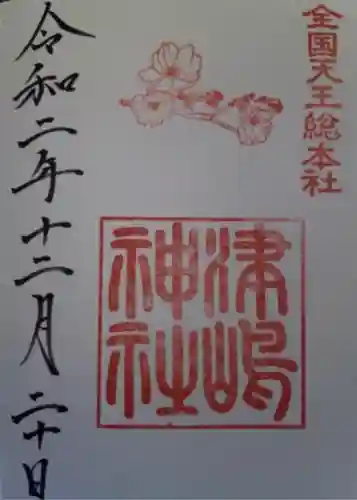 全国天王総本社
津嶋
神社
令和二年十二月二十日